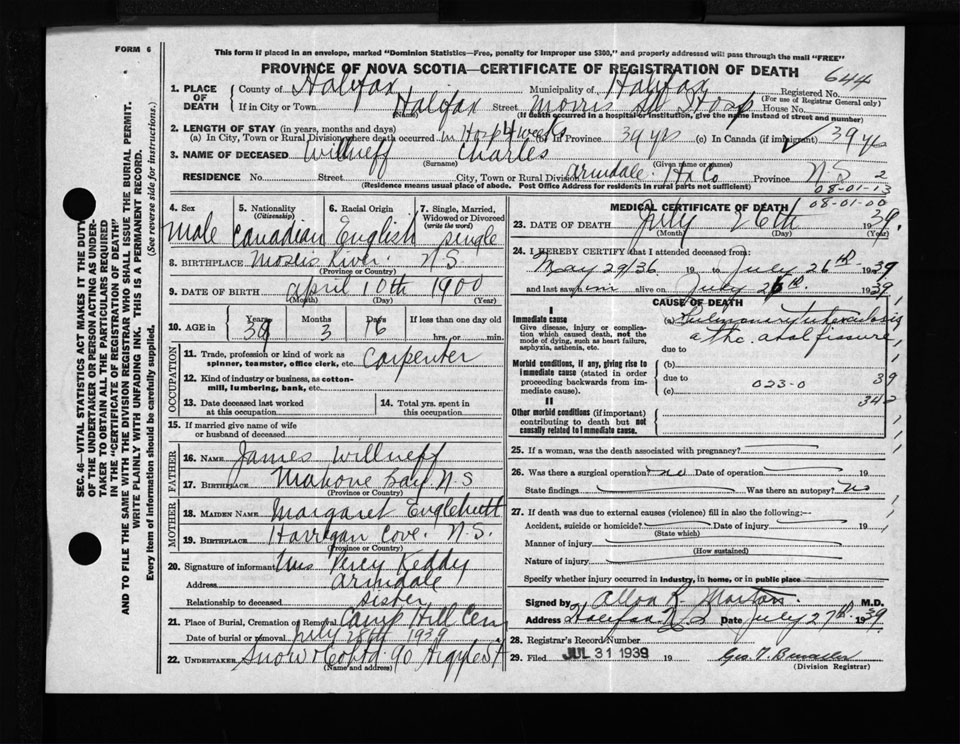 FORM 6
This form if placed in an envelope, marked "Dominion Statistics—Free, penalty for improper use $300," and properly addressed will pass through the mail "FREE"
PROVINCE OF NOVA SCOTIA—CERTIFICATE OF REGISTRATION OF DEATH
644
1. PLACE OF DEATH County of Halifax Municipality of Halifax Registered No.
(For use of Registrar General only)
If in City or Town Halifax Street Morris St Hosp House No.
(Name) (If death occurred in a hospital or institution, give the name instead of street and number)
2. LENGTH OF STAY (in years, months and days)
(a) In City, Town or Rural Division where death occurred in Hosp 4 weeks (b) In Province 39 yrs (c) In Canada (if immigrant) 39 yrs
3. NAME OF DECEASED Willneff Charles
(Surname) (Given name or names)
RESIDENCE No. Street City, Town or Rural Division Armdale Hx Co Province N-S 2
(Residence means usual place of abode. Post Office Address for residents in rural parts not sufficient)
08-01-13
08-01-00
4. Sex 5. Nationality (Citizenship) 6. Racial Origin 7. Single, Married, Widowed or Divorced (write the word)
Male Canadian English single
8. BIRTHPLACE Mosers River. N S.
(Province or Country)
9. DATE OF BIRTH April 10th 1900
(Month) (Day) (Year)
10. AGE in Years Months Days If less than one day old
39 3 16 hrs. or min.
OCCUPATION
11. Trade, profession or kind of work as spinner, teamster, office clerk, etc. Carpenter
12. Kind of industry or business, as cotton-mill, lumbering, bank, etc.
13. Date deceased last worked at this occupation
14. Total yrs. spent in this occupation
15. If married give name of wife or husband of deceased
FATHER
16. NAME James Willneff
17. BIRTHPLACE Mahone Bay N-S
(Province or Country)
MOTHER
18. MAIDEN NAME Margaret Englehutt
19. BIRTHPLACE Harrigan Cove. N.S.
(Province or Country)
20. Signature of informant Mrs Percy Keddy
Address Armdale
Relationship to deceased sister
21. Place of Burial, Cremation or Removal Camp Hill Cem
Date of burial or removal July 28th 1939
22. UNDERTAKER Snow & Co Ltd. 90 Argyle St
(Name and address)
MEDICAL CERTIFICATE OF DEATH
23. DATE OF DEATH July 26th 1939.
(Month) (Day) (Year)
24. I HEREBY CERTIFY that I attended deceased from:
May 29/36 19 to July 26th 1939
and last saw him alive on July 26th. 1939
CAUSE OF DEATH
I
Immediate cause
Give disease, injury or complication which caused death, not the mode of dying, such as heart failure, asphyxia, asthenia, etc.
(a) Pulmonary tuberculosis
due to
Morbid conditions, if any, giving rise to immediate cause (stated in order proceeding backwards from immediate cause).
(b)
due to 023-0 39
(c) 342
II
Other morbid conditions (if important) contributing to death but not causally related to immediate cause.
25. If a woman, was the death associated with pregnancy?
26. Was there a surgical operation? no Date of operation 19
State findings Was there an autopsy? no
27. If death was due to external causes (violence) fill in also the following:—
Accident, suicide or homicide? Date of injury 19
(State which)
Manner of injury
(How sustained)
Nature of injury
Specify whether injury occurred in industry, in home, or in public place
Signed by Allan R Morton. M.D.
Address Halifax N S Date July 27th. 1939.
28. Registrar's Record Number
29. Filed JUL 31 1939 19
(Division Registrar)
SEC. 46—VITAL STATISTICS ACT MAKES IT THE DUTY OF THE UNDERTAKER OR PERSON ACTING AS UNDERTAKER TO OBTAIN ALL THE PARTICULARS REQUIRED IN THE "CERTIFICATE OF REGISTRATION OF DEATH"
AND TO FILE THE SAME WITH THE DIVISION REGISTRAR WHO SHALL ISSUE THE BURIAL PERMIT.
WRITE PLAINLY WITH UNFADING INK. THIS IS A PERMANENT RECORD.
Every item of information should be carefully supplied. (See reverse side for instructions.)